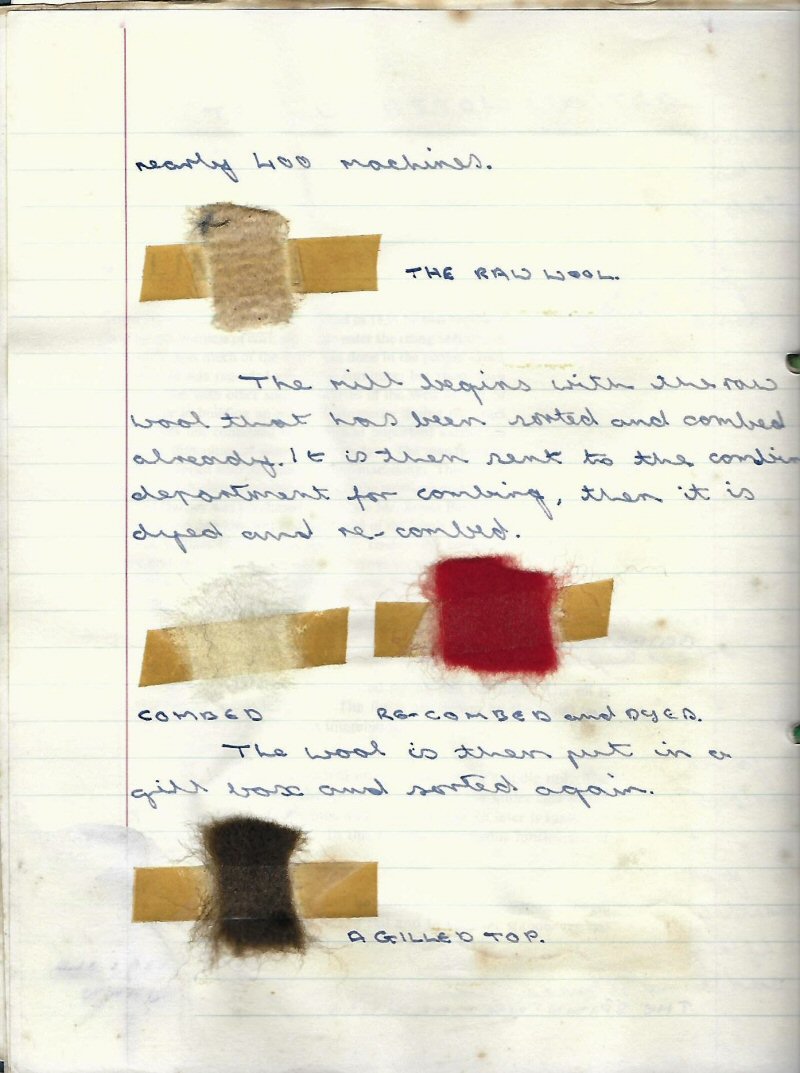 nearly 400 machines.
THE RAW WOOL.
The mill begins with the raw
wool that has been sorted and combed
already. It is then sent to the combin
department for combing, then it is
dyed and re-combed.
COMBED RE-COMBED and DYED.
The wool is then put in a
gill box and sorted again.
A GILLED TOP.